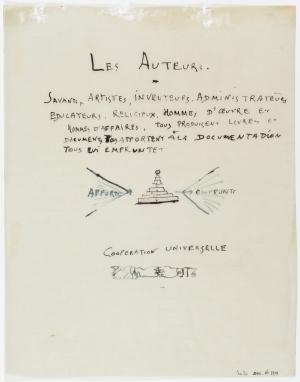 LES AUTEURS.
SAVANTS, ARTISTES, INVENTEURS. ADMINISTRATEURS
EDUCATEURS. RELIGIEUX, HOMMES D'ŒUVRE ET
HOMMES D'AFFAIRES, TOUS PRODUISENT LIVRES ET
DOCUMENTS TOUS APPORTENT À LA DOCUMENTATION
TOUS LUI EMPRUNTENT
APPORTS
EMPRUNTS
COOPERATION UNIVERSELLE